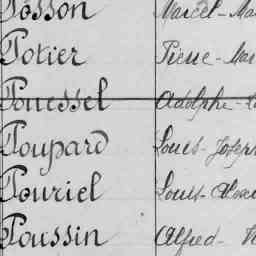 Posson Marcel-
Potier Pierre-
Pouessel Adolphe-
Poupard Louis-Joseph
Pouriel Louis-
Poussin Alfred-